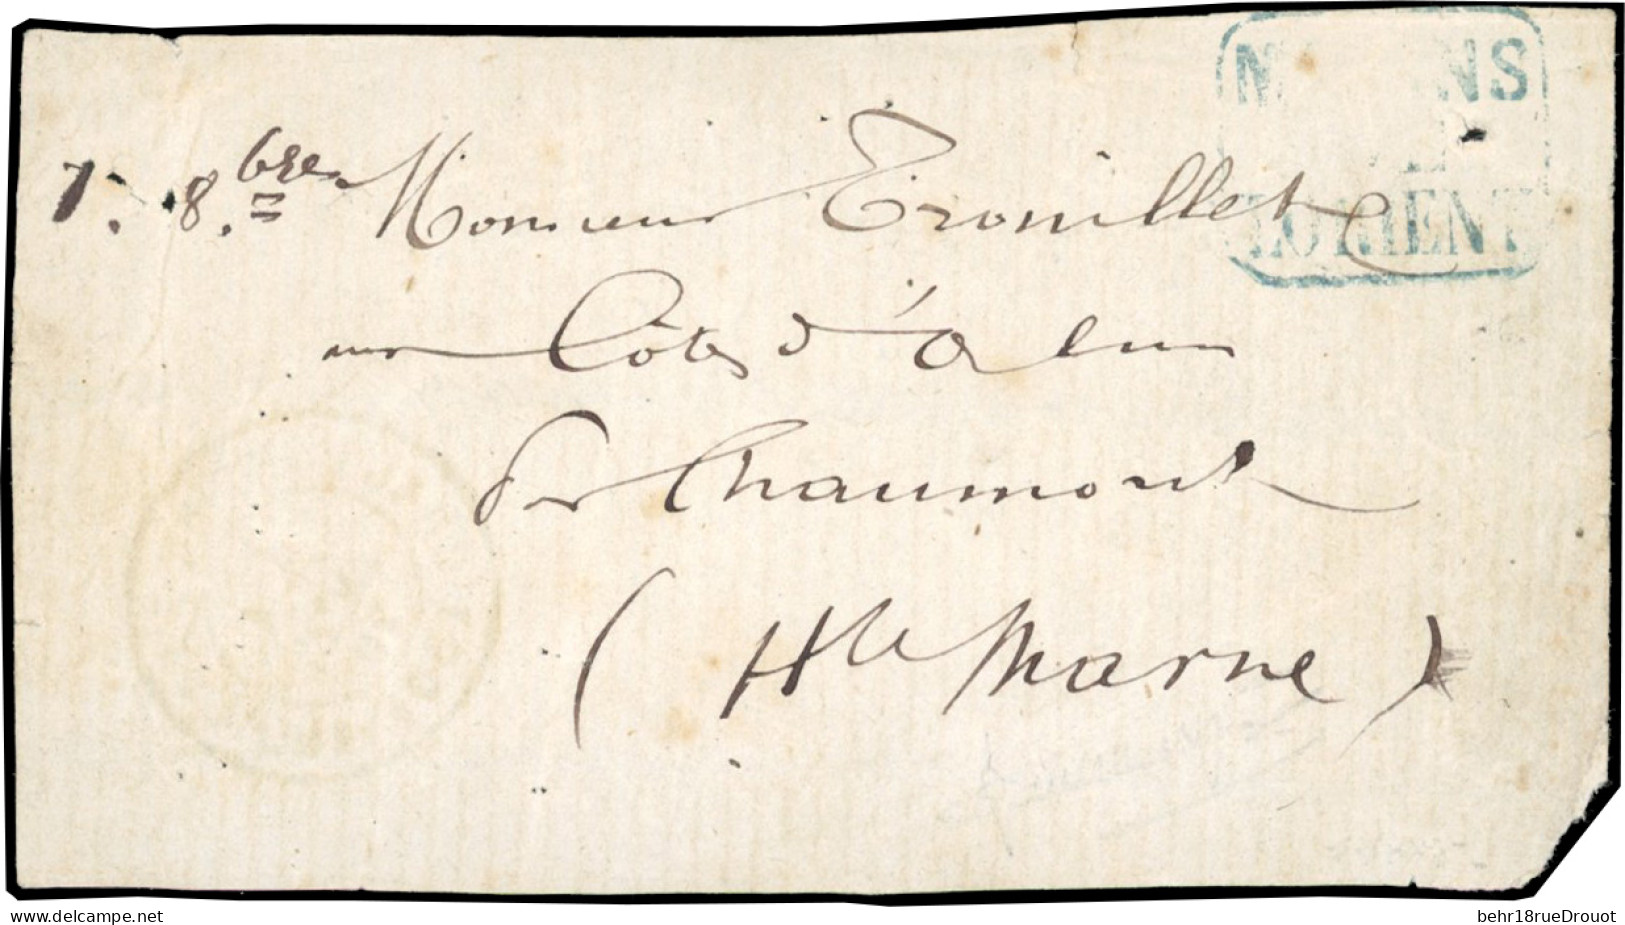 MARINS
LORIENT
7. 8.bre Monsieur Trouillet
aux Côtes d'Alun
Per Chaumont
(Hte Marne)
www.delcampe.net
behr18rueDrouot